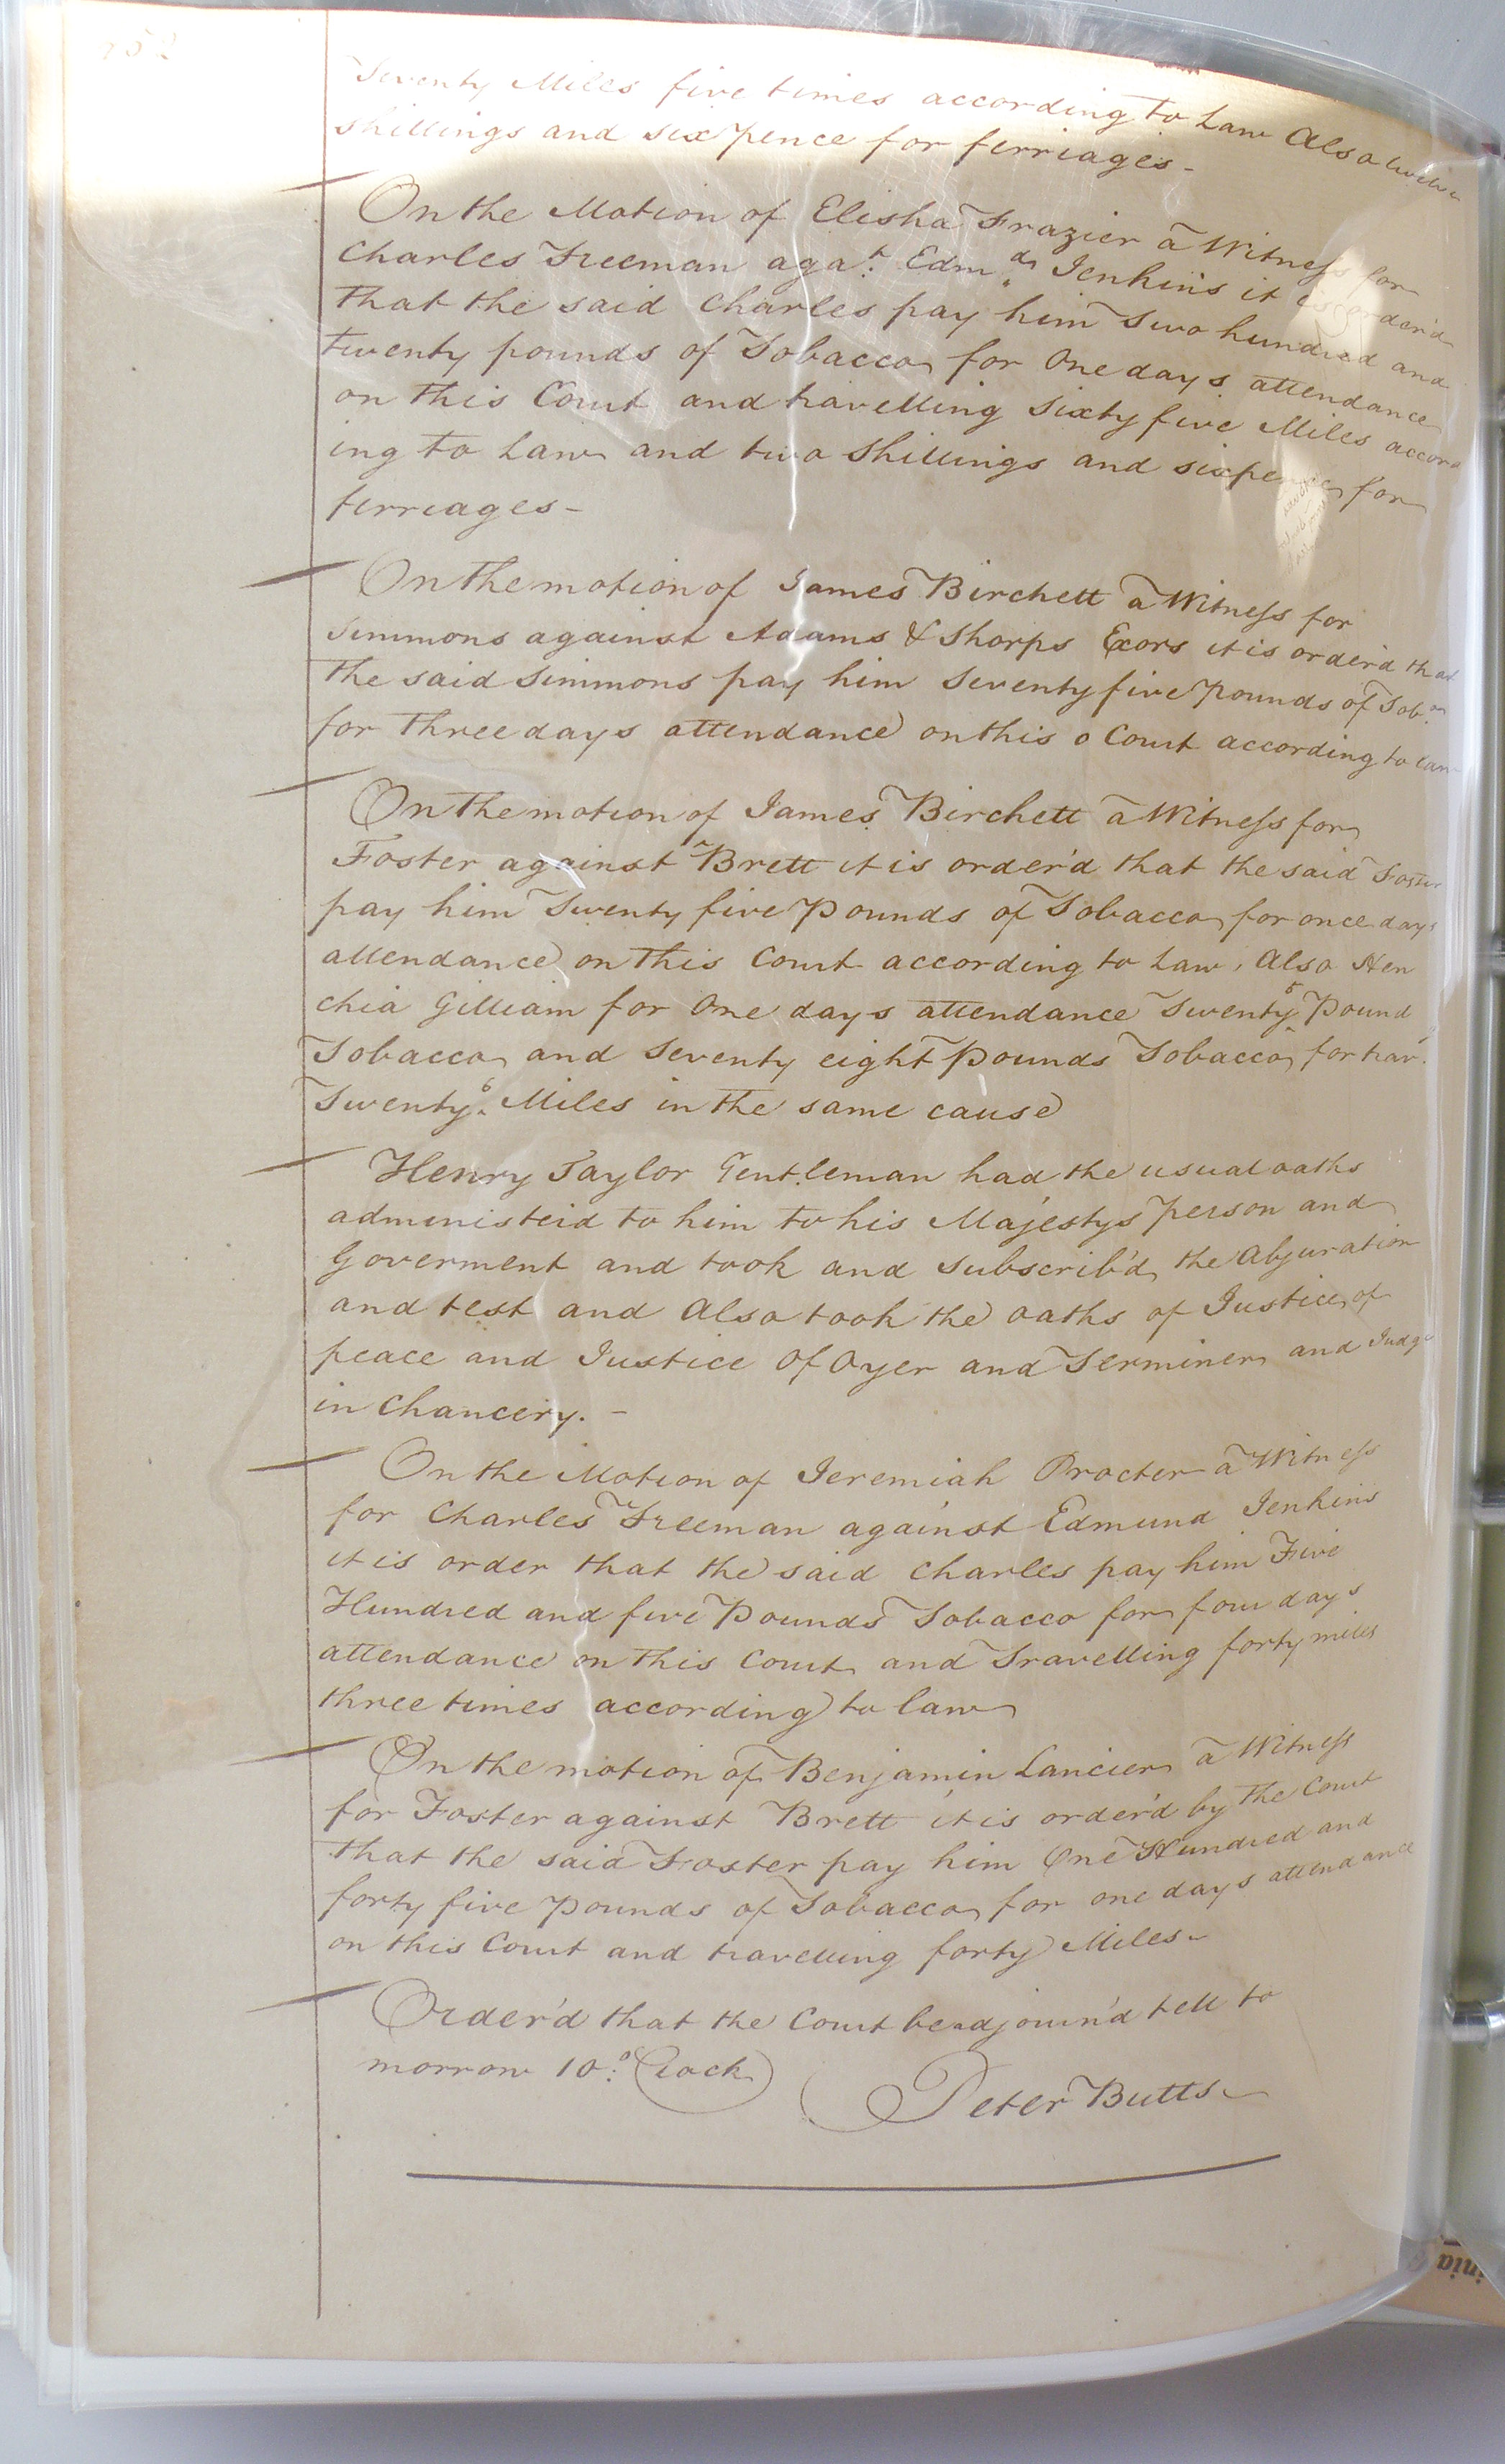 152
Seventy Miles five times according to Law Also twelve
shillings and six pence for ferriages -
On the Motion of Elisha Frazier a Witness for
Charles Freeman agat. Edmds Jenkins it is order'd
that the said Charles pay him Two hundred and
twenty pounds of Tobacco for One days attendance
on this Court and travelling Sixty five Miles accord
ing to Law and two Shillings and sixpence for
ferriages -
On the motion of James Birchett a Witness for
Simmons against Adams & Thorps Exors it is order'd that
the said Simmons pay him Seventy five pounds of Tobo.
for three days attendance on this o Court according to law
On the motion of James Birchett a Witness for
Foster against Brett it is order'd that the said Foster
pay him Twenty five Pounds of Tobacco for once days
attendance on this Court according to Law, Also Hen
chia Gilliam for One days attendance Twenty 5 Pound
Tobacco and Seventy eight Pounds Tobacco for trav.g
Twenty 6 Miles in the same cause
Henry Taylor Gentleman had the usual oaths
administeid to him to his Majestys person and
Goverment and took and subscrib'd the Abjuration
and test and Also took the oaths of Justice of
peace and Justice Of Oyer and Terminer and Judge
in Chancery. -
On the Motion of Jeremiah Procter a Witness
for Charles Freeman against Edmund Jenkins
it is order that the said Charles pay him Five
Hundred and five Pounds Tobacco for four days
attendance on this Court and Travelling forty miles
three times according to law
On the motion of Benjamin Lancier a Witness
for Foster against Brett it is order'd by the Court
that the said Foster pay him One Hundred and
forty five pounds of Tobacco for one days attendance
on this Court and travelling forty Miles -
Order'd that the Court be adjourn'd tell to
morrow 10 o Clock
Peter Butts